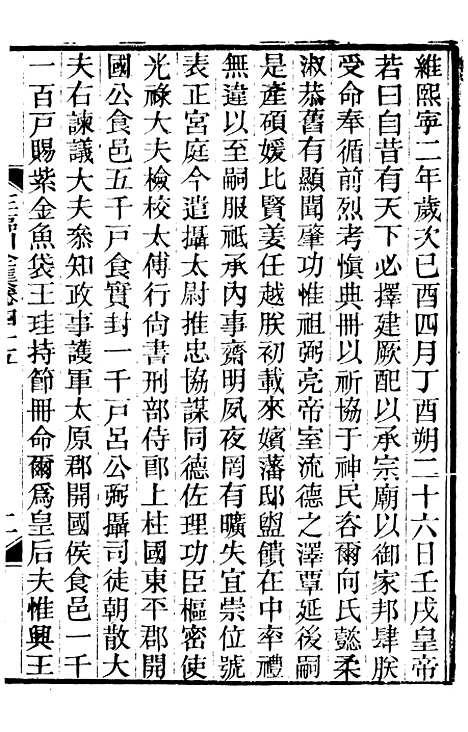 維熙寧二年歲次己酉四月丁酉朔二十六日壬戌皇帝
若曰自昔有天下必擇建厥配以承宗廟以御家邦肆朕
受命奉循前烈考愼典冊以祈協于神民咨爾向氏懿柔
淑恭舊有顯聞肇功惟祖弼亮帝室流德之澤覃延後嗣
是產碩媛比賢姜任越朕初載來嬪藩邸盥饋在中率禮
無違以至嗣服祗承內事齋明夙夜罔有曠失宜崇位號
表正宮庭今遣攝太尉推忠協謀同德佐理功臣樞密使
光祿大夫檢校太傅行尚書刑部侍郎上柱國東平郡開
國公食邑五千戸食實封一千戸呂公弼攝司徒朝散大
夫右諫議大夫叅知政事護軍太原郡開國侯食邑一千
一百戸賜紫金魚袋王珪持節冊命爾爲皇后夫惟興王